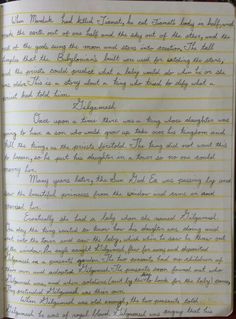 When Marduk had killed Tiamat, he cut Tiamat's body in half, and
made the earth out of one half and the sky out of the other, and the
rest of the gods using the moon and stars into creation. The tall
temples that the Babylonians built were used for watching the stars,
and the priests could predict what a baby would do when he or she
was older. This is a story about a king who tried to defy what a
priest had told him.
Gilgamesh
Once upon a time there was a king whose daughter was
going to have a son who would grow up take over his kingdom and
kill the king, as the priests foretold. The king did not want this
to happen, so he put his daughter in a tower so no one could
marry her.
Many years later, the Sun God Ea was passing by and
saw the beautiful princess from the window and soon
married her.
Eventually she had a baby when she named Gilgamesh.
One day the king wanted to know how his daughter was doing and
went into the tower and saw the baby, which when he saw he threw out
of the window. An eagle caught Gilgamesh from far away and deposited
Gilgamesh in a peasants garden. The two peasants had no children of
their own and adopted Gilgamesh. The peasants soon found out who
Gilgamesh was, and when soldiers came by to look for the baby
they pretended Gilgamesh was their own.
When Gilgamesh was old enough, the two peasants told
Gilgamesh he was of royal blood. Gilgamesh was angry that his